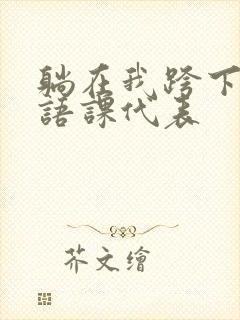 躺在我跨下
語課代表
芥文繪